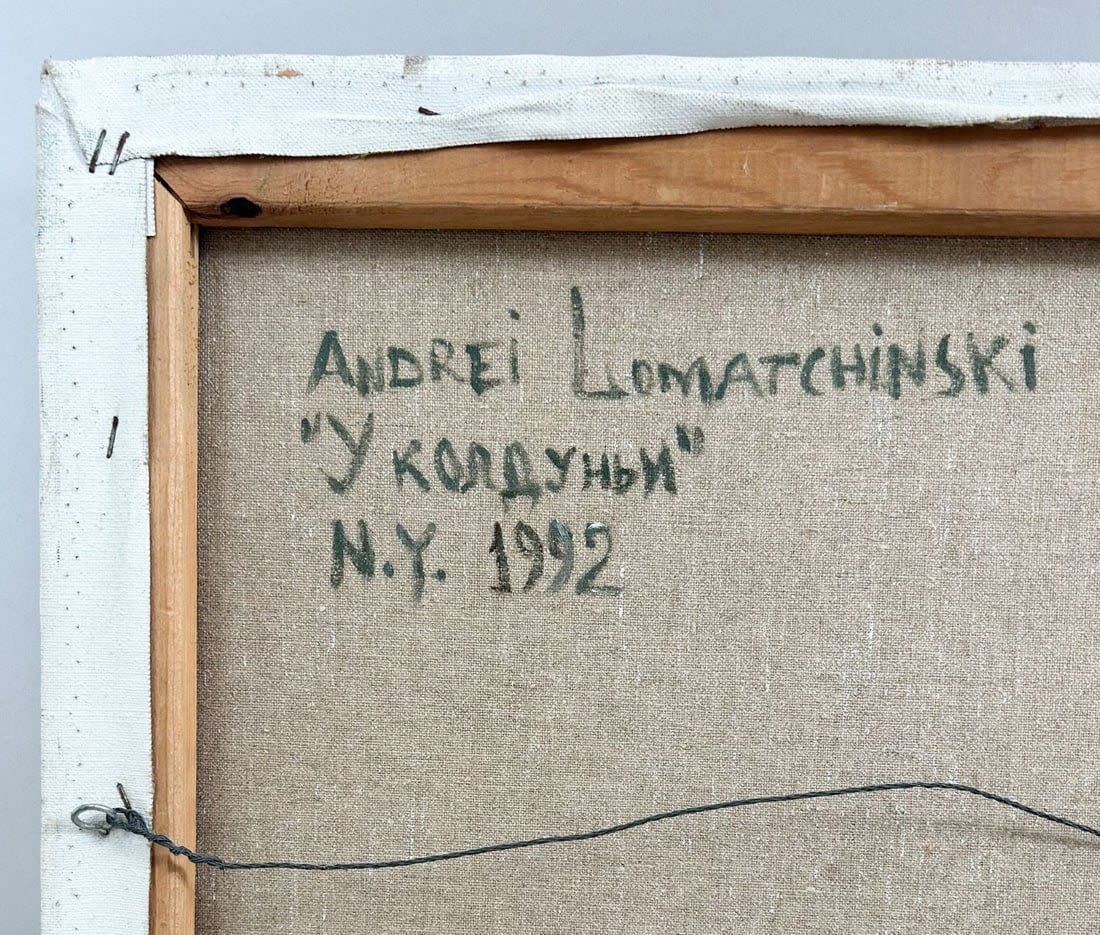 ANDREi LOMATCHiNSKi
"У колдуньи"
N.Y. 1992